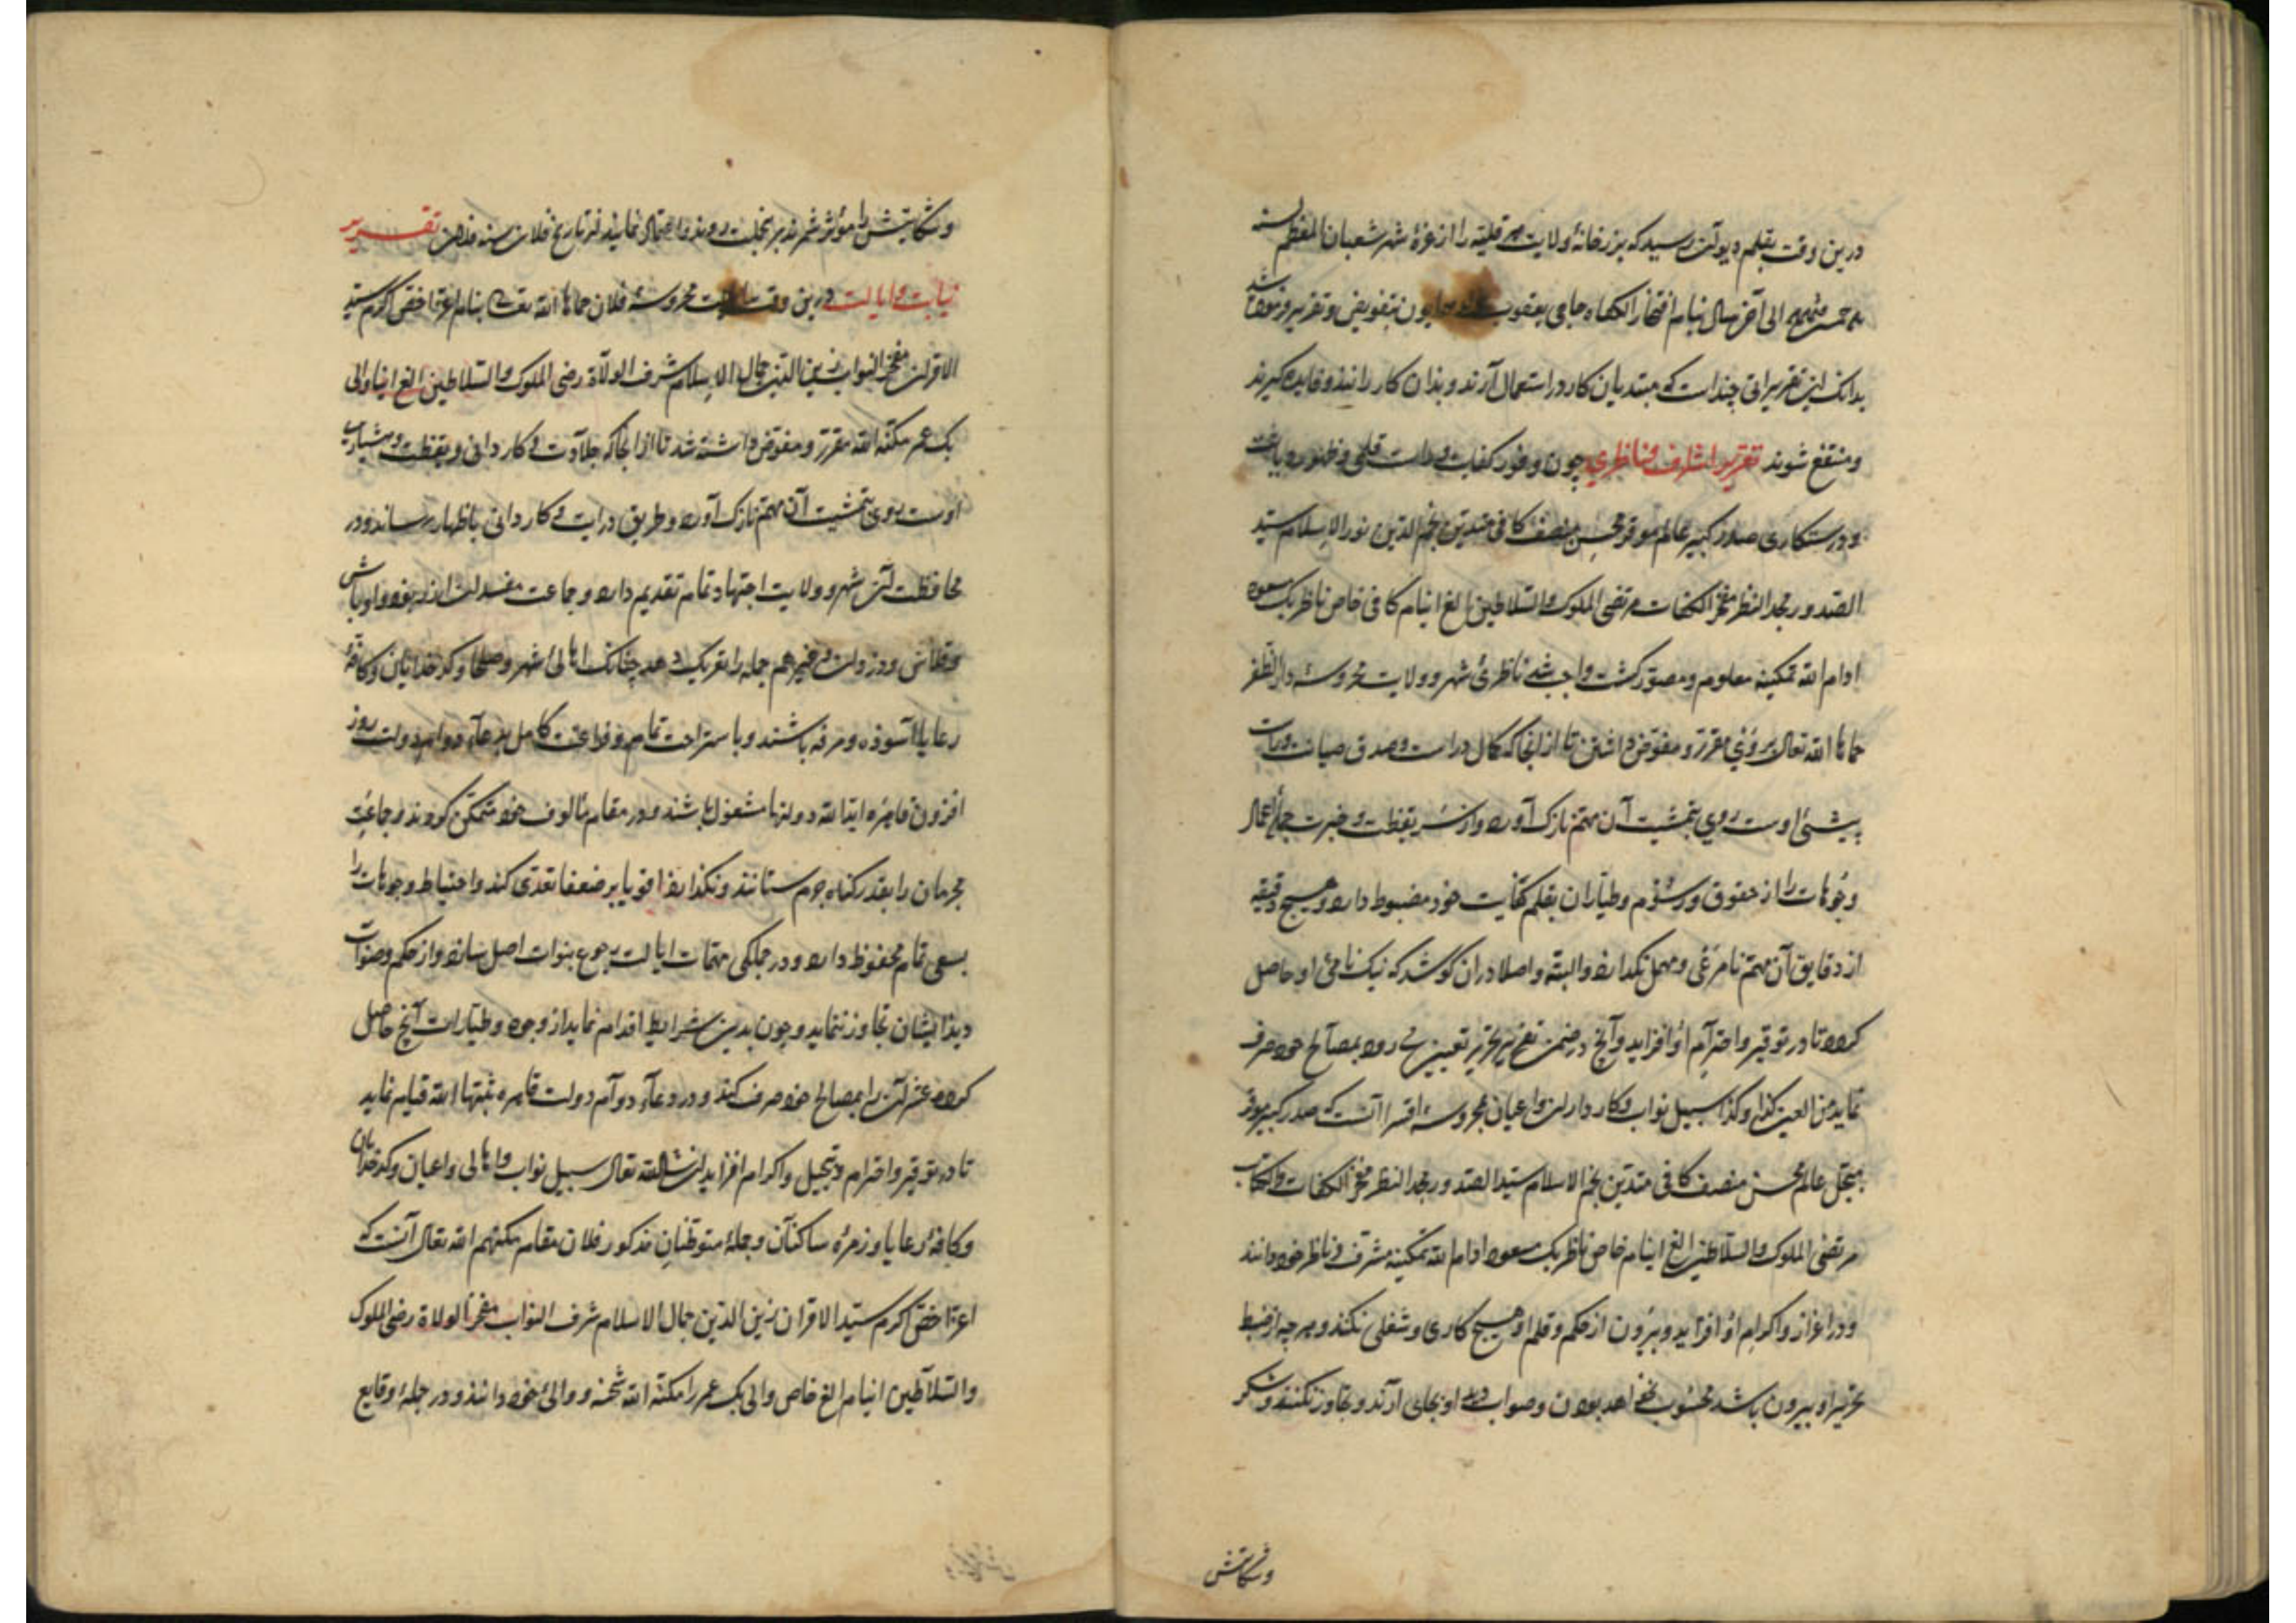 درین وقت بقلم دیوان رسید که بزرخانهٔ ولایت را از غرهٔ شهر شعبان المعظم لسنه
الی آخر سال بنام افتخار الکفاه حاجی یعقوب بتفویض و تقریر و
بدانک این تقریراتی چند است که مبتدیان کار در استعمال آرند و بدان کار رانند و فایده گیرند
و منتفع شوند تقریر اشراف و ناظری چون وفور کفایت و قلمی و ظهور دیانت
و درستکاری صدر کبیر عالم موقر محسن منصف کافی متدین نجم الدین نور الاسلام سید
الصدور مجد النظر مفخر الکفات مرتضی الملوک والسلاطین الغ اینام کافی خاص ناظر بک مسعود
ادام الله تمکینه معلوم و مصور کشت واجب شد ناظری شهر و ولایت محروسه دار الظفر
حماها الله تعالی بروی مقرر و مفوض داشتن تا از انجا که کمال دراست و صدق صیانت و
پیشهٔ اوست روی بتمشیت آن مهم نازک آورد و از سر یقظت و خبرت جمله اعمال
وجوهات را از حقوق و رسوم و طیاران بقلم کفایت خود مضبوط دارد و هیچ دقیقه
از دقایق آن مهم نامرعی و مهمل نگذارد و البته و اصلا دران کوشد که نیک نامی او حاصل
کردد تا در توقیر و احترام او افزاید و آنچ در ضمن تقریر بمصالح خود صرف
نماید من العین کذا و کذا سبیل نواب و کارداران و اعیان محروسه اقسرا آنست که صدر کبیر موقر
مبجل عالم محسن منصف کافی متدین نجم الاسلام سید الصدور مجد النظر مفخر الکفات والکتاب
مرتضی الملوک والسلاطین الغ اینام خاص ناظر بک مسعود ادام الله تمکینه مشرف و ناظر خود دانند
و در اعزاز و اکرام او افزایند و بیرون از حکم و قلم او هیچ کاری و شغلی نکنند و هرچه از ضبط
تحریر او بیرون باشد محسوب نخواهد بودن و صواب دید او بجای آرند و تجاوز نکنند و شکر
و شکایتش
و شکایتش را مؤثر شمرند برینجملت روند و اعتماد نمایند فی تاریخ فلان سنه فلان تقریر
نیابت و ایالت درین وقت محروسهٔ فلان حماها الله تعالی بنام اعز اخص اکرم سید
الاقران مفخر النواب زین الدین جمال الاسلام شرف الولاة رضی الملوک والسلاطین الغ اینا والی
بک عمر مکنه الله مقرر و مفوض داشته شد تا از انجا که جلادت و کاردانی و یقظت و هشیاری
اوست روی بتمشیت آن مهم نازک آورد و طریق درایت و کاردانی باظهار رساند و در
محافظت آن شهر و ولایت اجتهاد تمام تقدیم دارد و جماعت مفسدان و اوباش
و قلاش و دزدان و غیرهم جمله را تعریک دهد چنانک اهالی شهر و صلحا و کدخدایان و کافهٔ
رعایا آسوده و مرفه باشند و باستراحت تمام و فراغت کامل بدعاء دوام دولت روز
افزون قاهره ابد الله دولتها مشغول باشند و در مقام مألوف خود متمکن کردند و جماعت
مجرمان را بقدر کناه جرم ستانند و نکذارد اقویا بر ضعفا تعدی کند و احتیاط وجوهات را
بسعی تمام محفوظ دارد و در جملکی مهمات ایالت رجوع بنواب اصل سازد و از حکم و صواب
دید ایشان تجاوز ننماید و چون بدین شرایط اقدام نماید از وجوه و طیارات آنچ حاصل
کردد عشر آن را بمصالح خود صرف کند و در دعاء دوام دولت قاهره ثبتها الله قیام نماید
تا در توقیر و احترام و تبجیل و اکرام افزاید ان شاء الله تعالی سبیل نواب و اهالی و اعیان و کدخدایان
و کافهٔ رعایا و زمرهٔ ساکنان و جملهٔ متوطنان مذکور فلان مقام مکنهم الله تعالی آنست که
اعز اخص اکرم سید الاقران زین الدین جمال الاسلام شرف النواب مفخر الولاة رضی الملوک
والسلاطین اینام الغ خاص والی بک عمر را مکنه الله شحنه و والی خود دانند و در جملهٔ وقایع